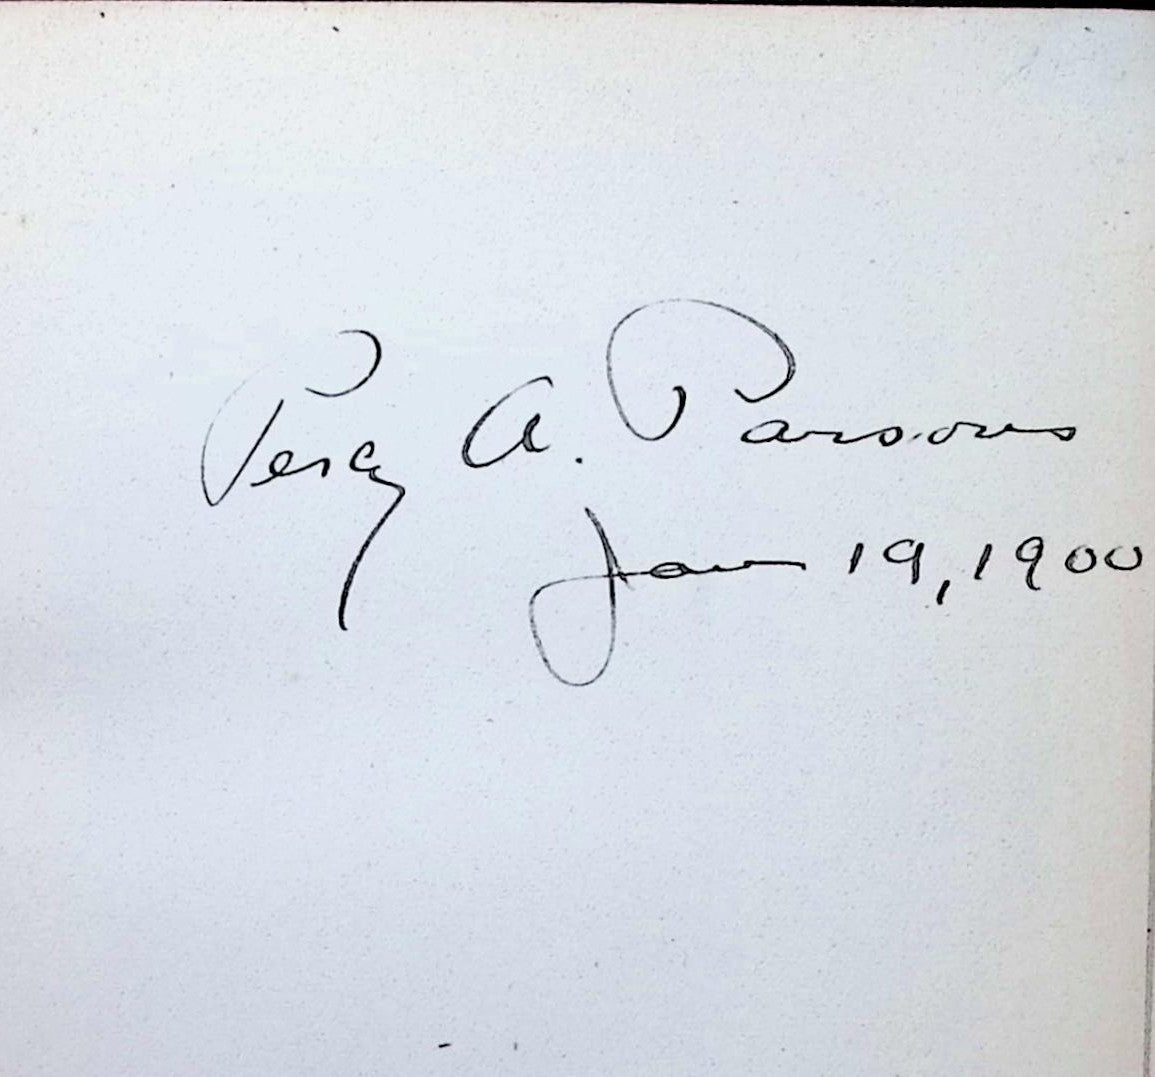 Percy A. Parsons
Jan 19, 1900